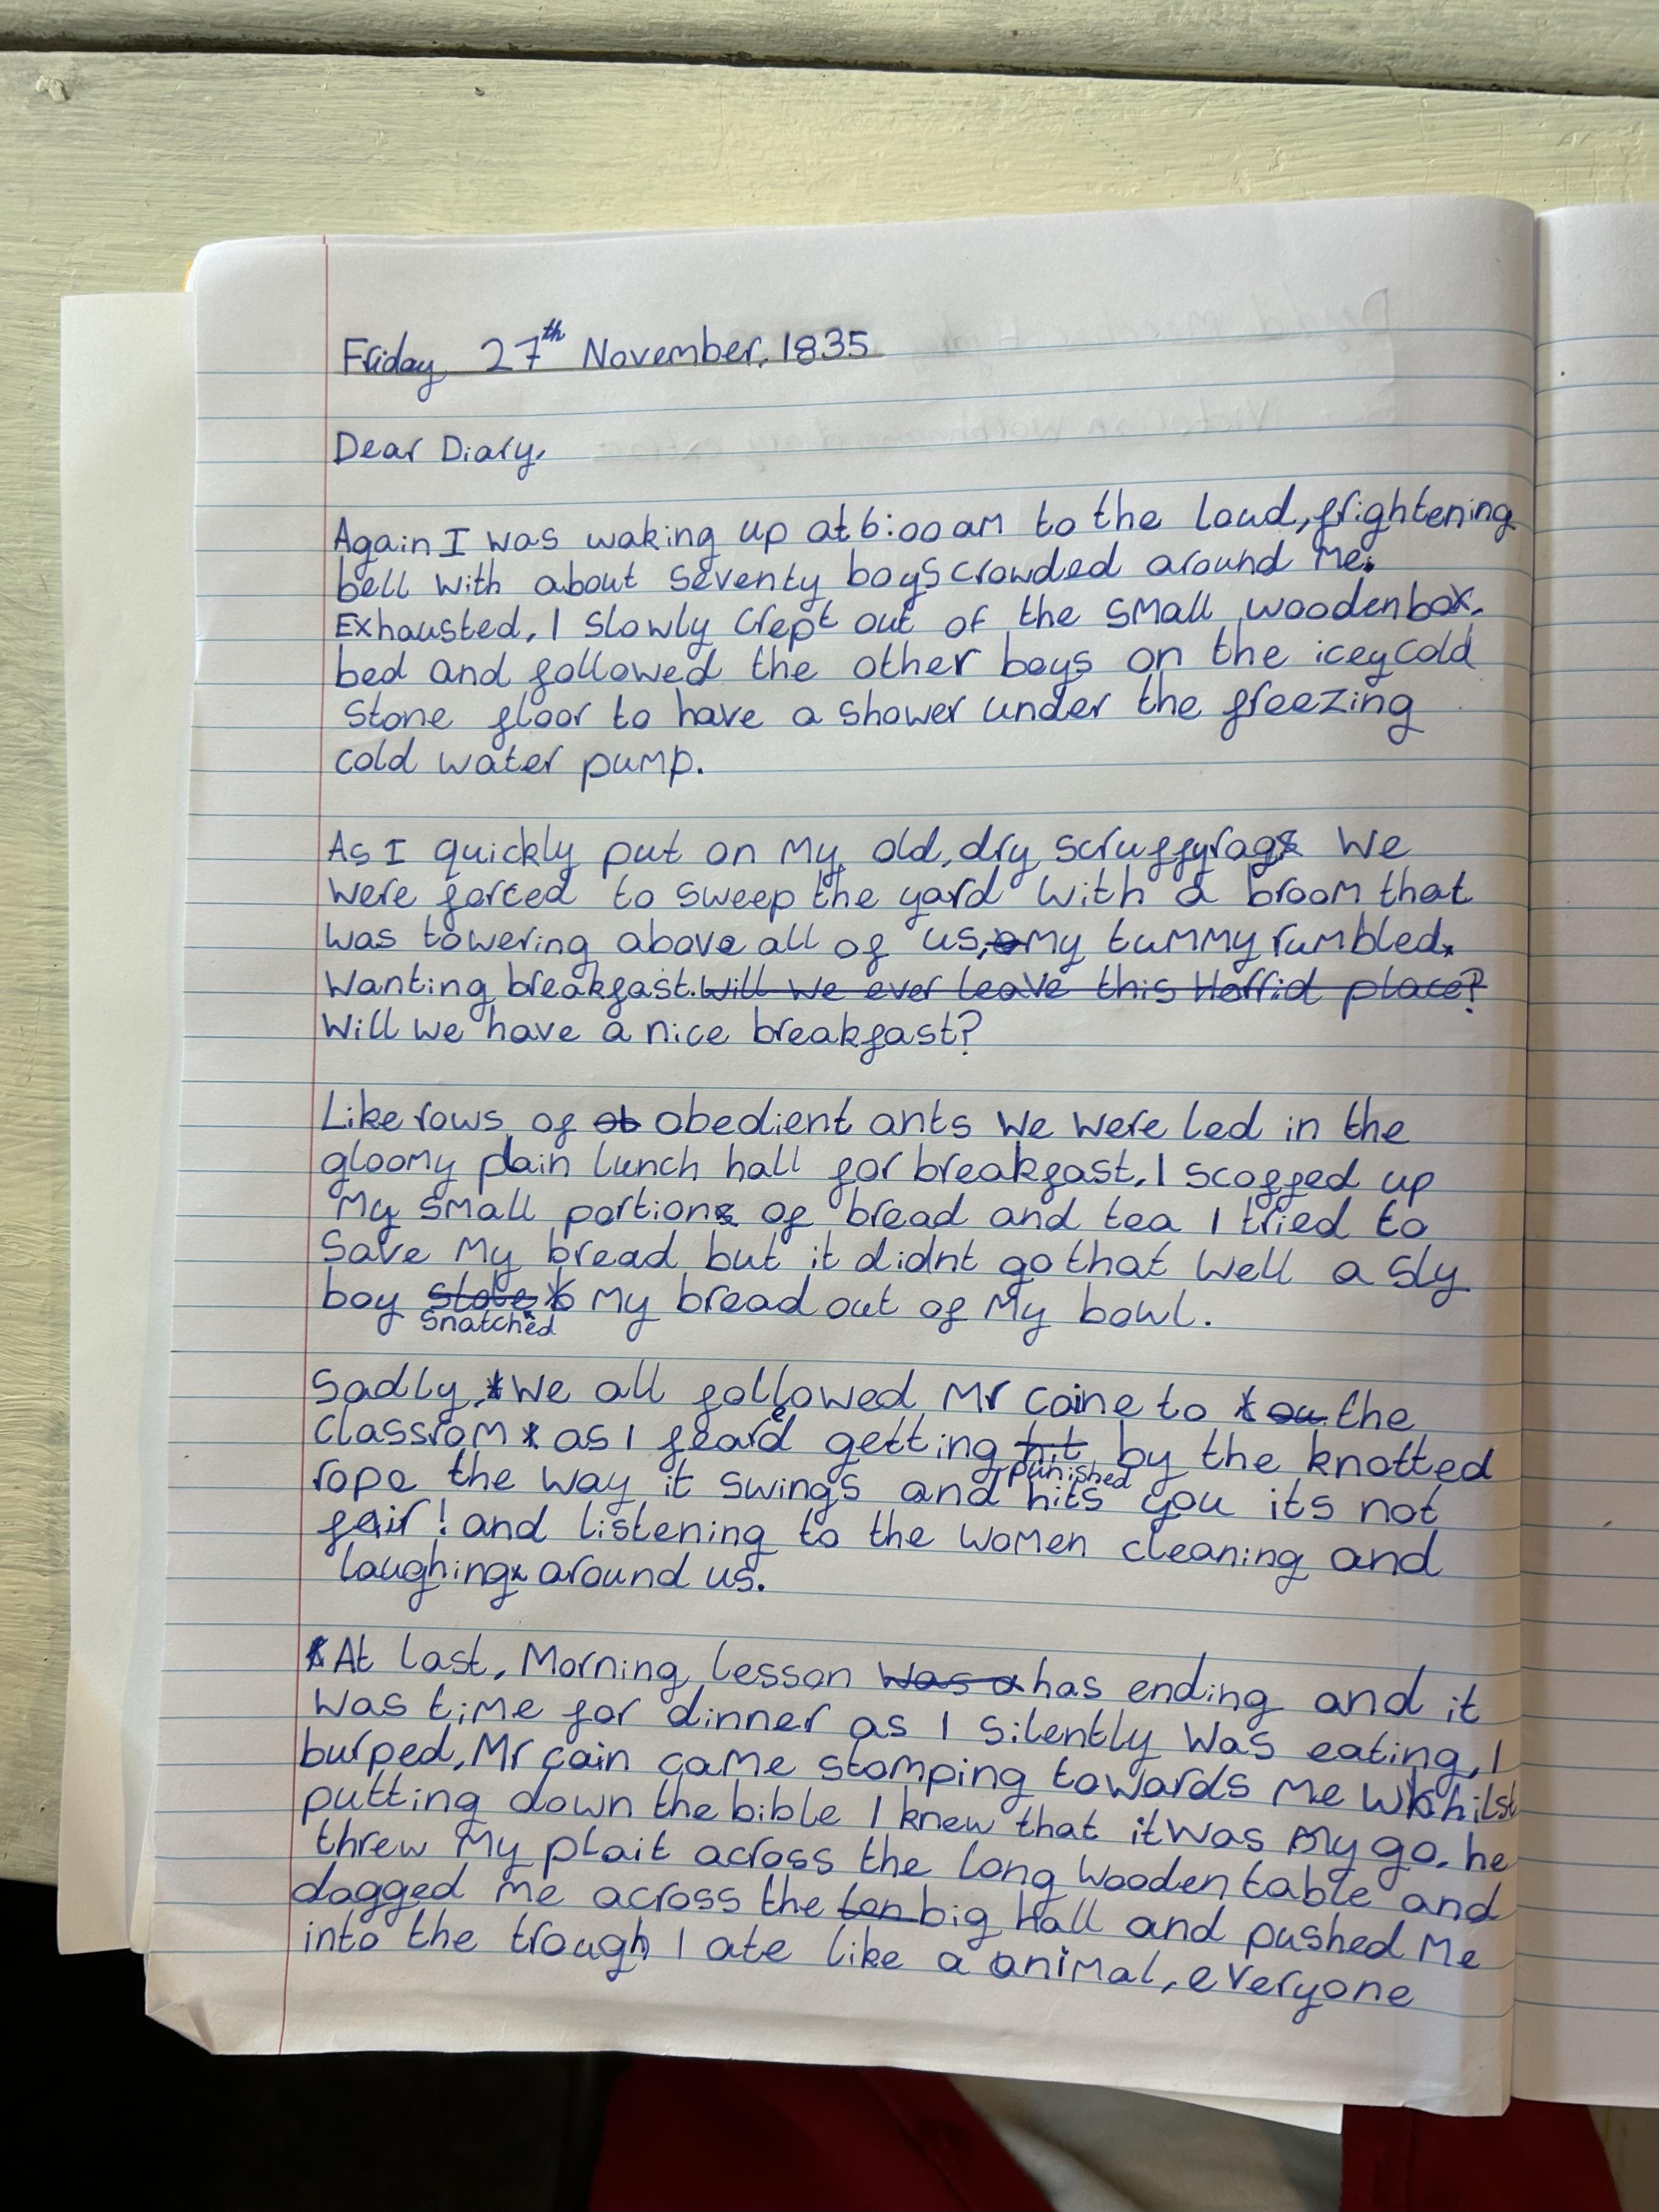 Friday, 27th November, 1835
Dear Diary,
Again I was waking up at 6:00 am to the loud, frightening
bell with about seventy boys crowded around me.
Exhausted, I slowly crept out of the small wooden box
bed and followed the other boys on the icey cold
stone floor to have a shower under the freezing
cold water pump.
As I quickly put on my old, dry scruffy rags We
were forced to sweep the yard with a broom that
was towering above all of us, my tummy rumbled.
Wanting breakfast. Will we ever leave this Horrid place?
Will we have a nice breakfast?
Like rows of ob obedient ants we were led in the
gloomy plain lunch hall for breakfast, I scoffed up
my small portion of bread and tea I tried to
save my bread but it didnt go that well a sly
boy stole my bread out of my bowl.
snatched
Sadly, We all followed Mr Caine to ou the
classrom as I feared getting hit by the knotted
punished
rope the way it swings and hits you its not
fair! and listening to the women cleaning and
laughing around us.
At last, Morning lesson was a has ending and it
was time for dinner as I silently was eating, I
burped, Mr cain came stomping towards me whilst
putting down the bible I knew that it was my go. he
threw my plait across the long wooden table and
dagged me across the big Hall and pushed me
into the trough I ate like a animal, everyone